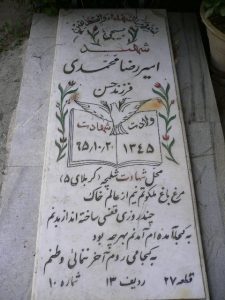 شهید
امیررضا محمدی
فرزند حسن
ولادت شهادت
۱۳۴۵ ۶۵،۱۰،۲۰
محل شهادت شلمچه (کربلای ۵)
مرغ باغ ملکوتم نیم از عالم خاک
چند روزی قفسی ساخته اند از بدنم
به کجا آمده ام آمدنم بهر چه بود
به کجا می روم آخر ننمائی وطنم
قطعه ۲۷ ردیف ۱۳ شماره ۱۰